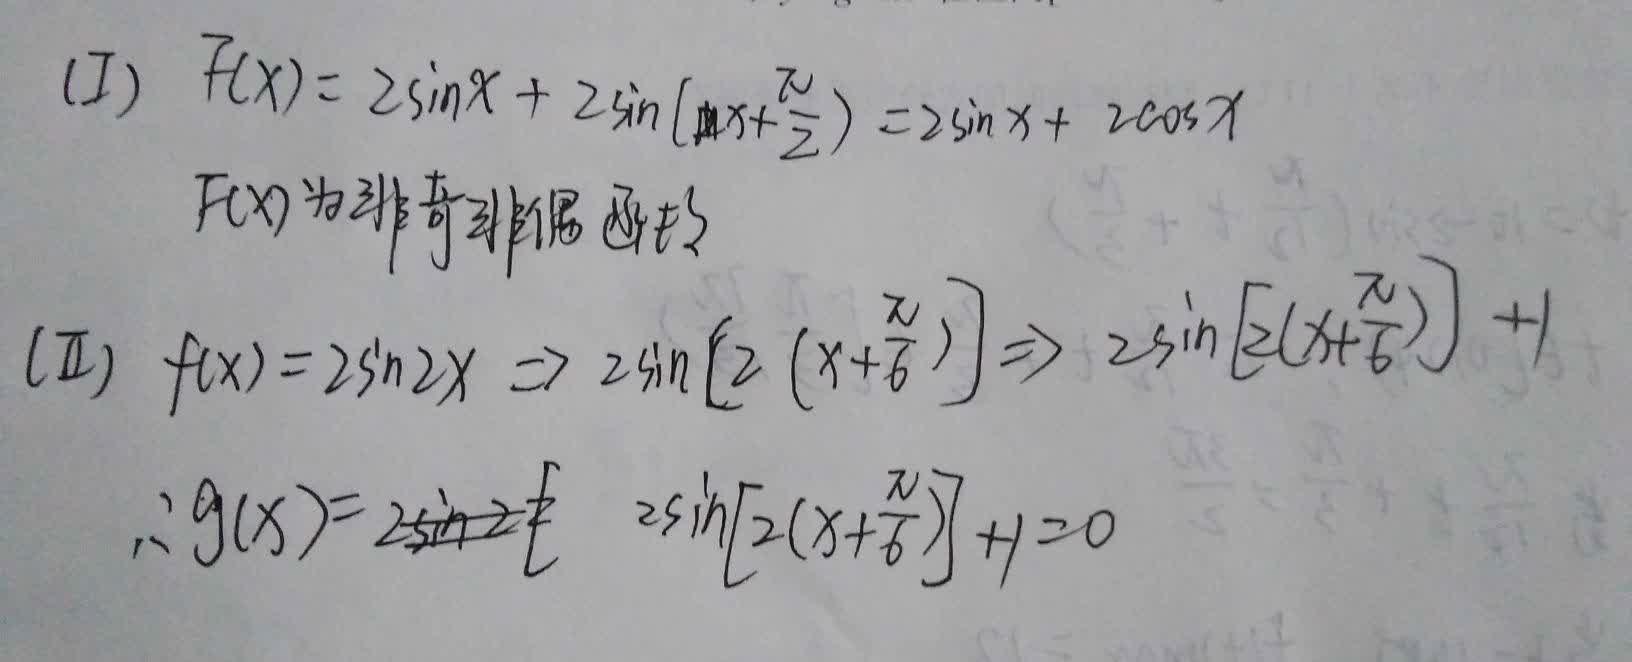 (I) F(x)=2sinx+2sin(x+π/2)=2sinx+2cosx
F(x)为非奇非偶函数
(Ⅱ) f(x)=2sin2x⇒2sin[2(x+π/6)]⇒2sin[2(x+π/6)]+1
∴g(x)=2sin[2(x+π/6)]+1=0